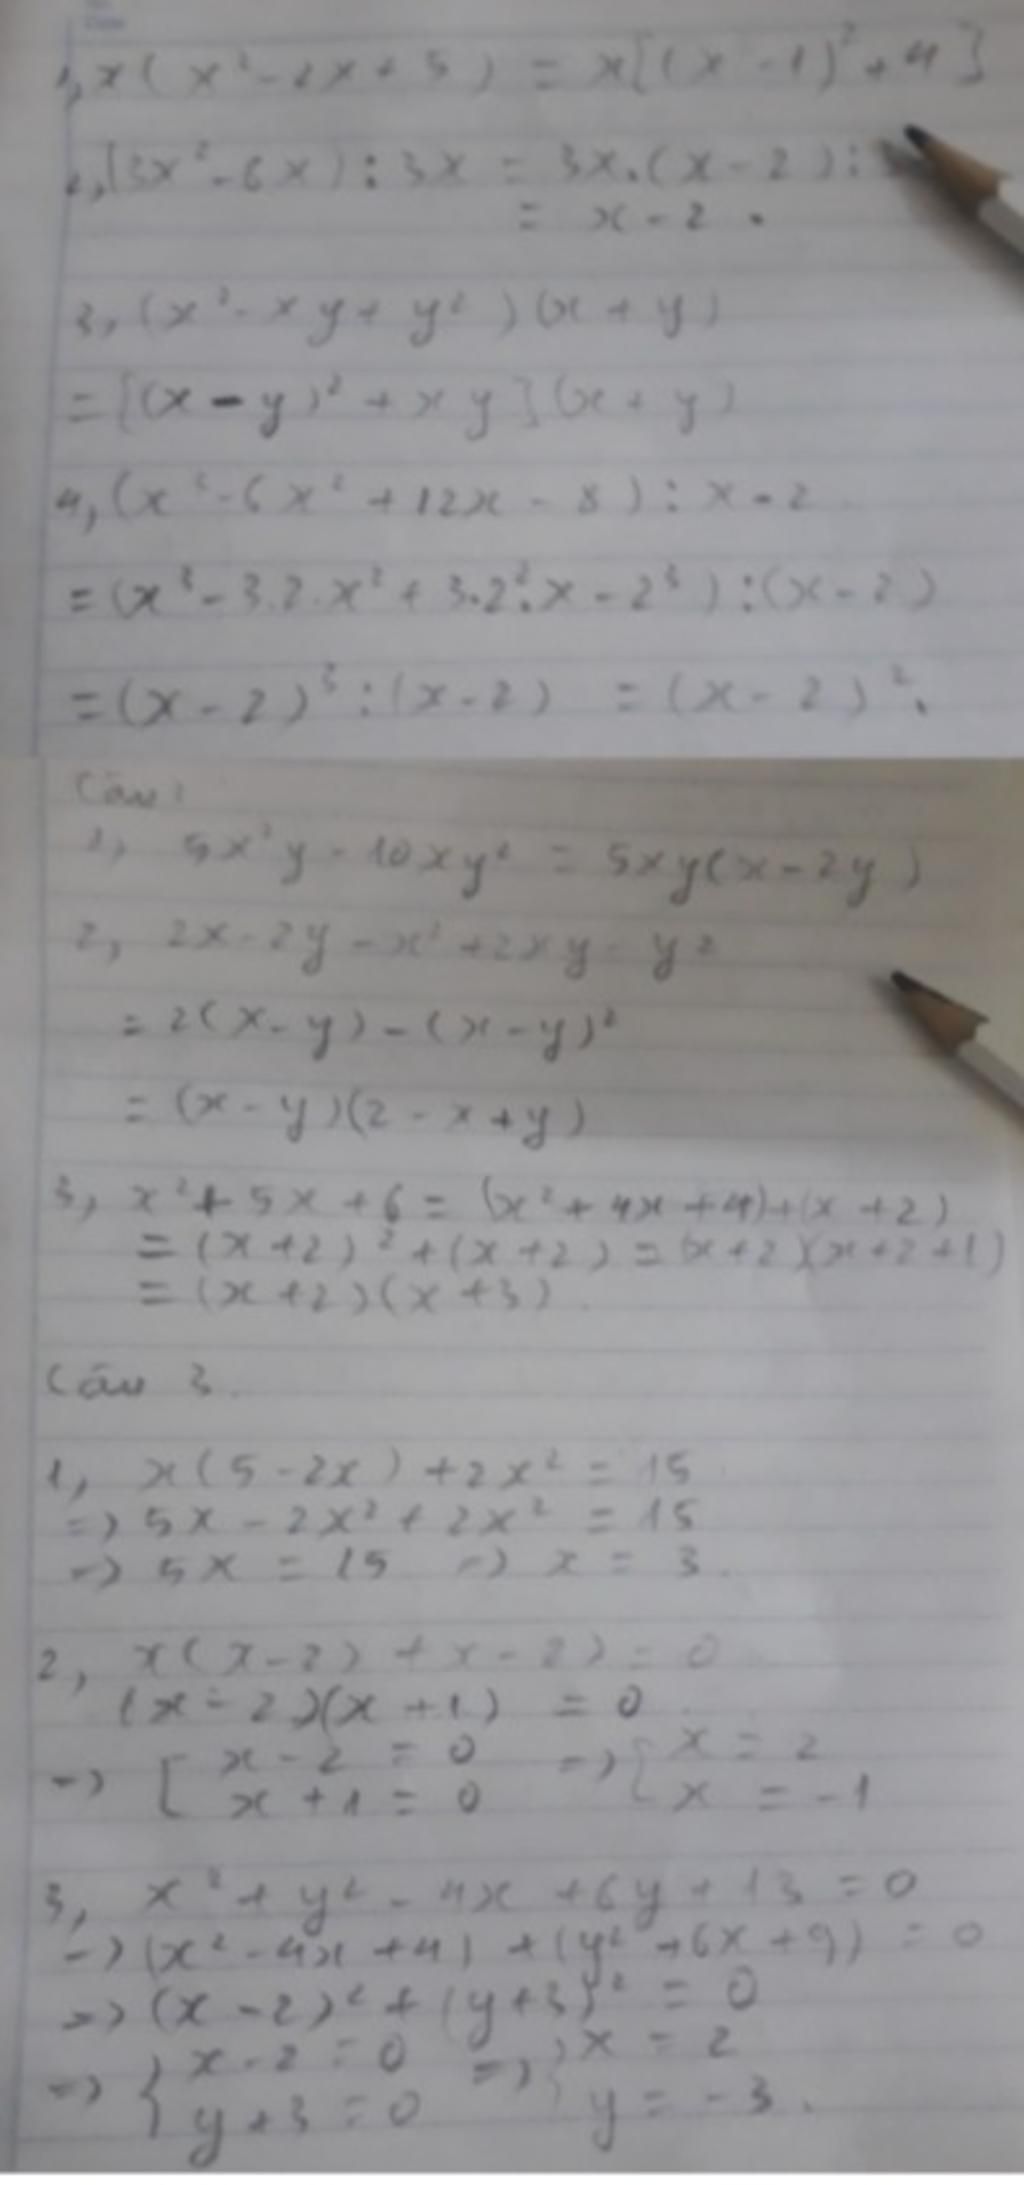 1, x(x² - 2x + 5) = x[(x - 1)² + 4]
2, (3x² - 6x) : 3x = 3x.(x - 2) :
= x - 2 .
3, (x² - xy + y²)(x + y)
= [(x - y)² + xy](x + y)
4, (x³ - 6x² + 12x - 8) : x - 2
= (x³ - 3.2.x² + 3.2².x - 2³) : (x - 2)
= (x - 2)³ : (x - 2) = (x - 2)².
Câu
1, 5x²y - 10xy² = 5xy(x - 2y)
2, 2x - 2y - x² + 2xy - y²
= 2(x - y) - (x - y)²
= (x - y)(2 - x + y)
3, x² + 5x + 6 = (x² + 4x + 4) + (x + 2)
= (x + 2)² + (x + 2) = (x + 2)(x + 2 + 1)
= (x + 2)(x + 3).
Câu 3.
1, x(5 - 2x) + 2x² = 15
=> 5x - 2x² + 2x² = 15
=> 5x = 15 => x = 3.
2, x(x - 2) + x - 2) = 0
(x - 2)(x + 1) = 0.
=> [ x - 2 = 0 => [ x = 2
x + 1 = 0 x = -1
3, x² + y² - 4x + 6y + 13 = 0
=> (x² - 4x + 4) + (y² + 6x + 9) = 0
=> (x - 2)² + (y + 3)² = 0
=> { x - 2 = 0 => { x = 2
y + 3 = 0 y = -3.